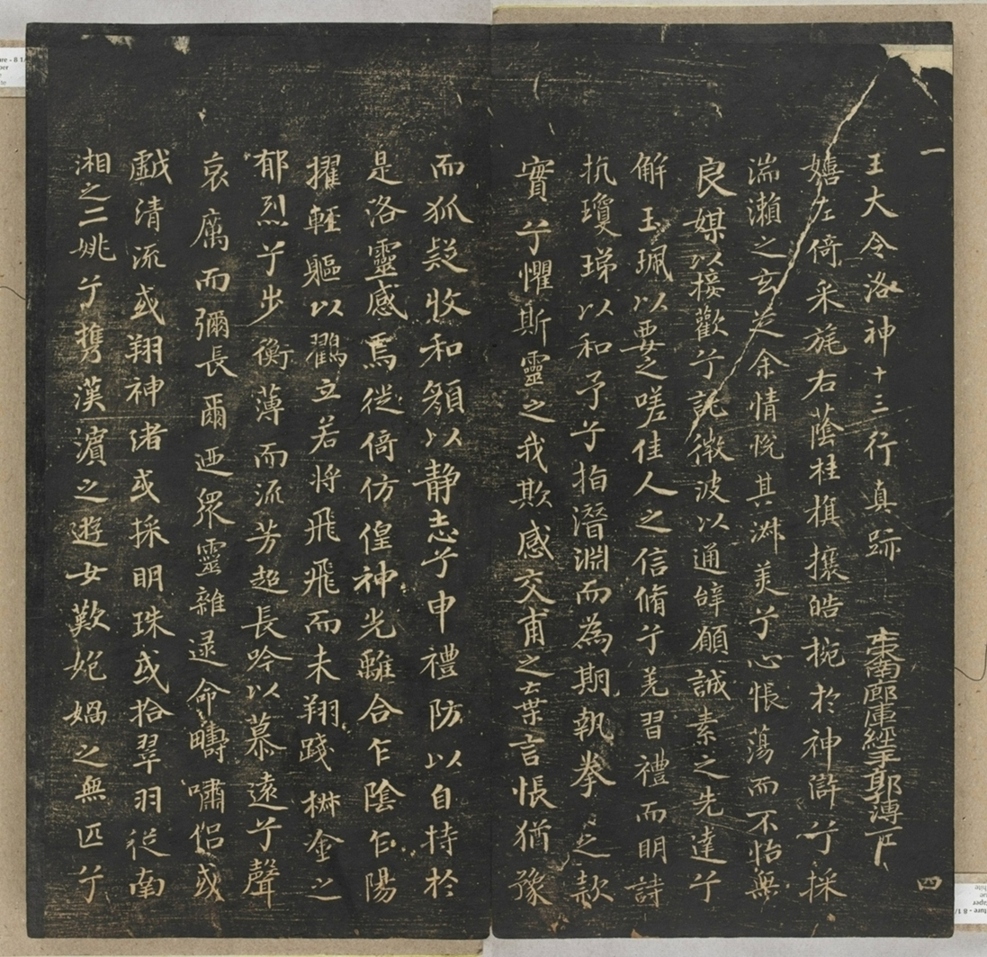 一
王大令洛神十三行真跡
嬉左倚采旄右蔭桂旗攘皓捥於神滸兮採
湍瀨之玄芝余情悅其淋美兮心悵蕩而不怡無
良媒以接歡兮託微波以通辝願誠素之先達兮
解玉珮以要之嗟佳人之信脩兮羌習禮而明詩
抗瓊珶以和予兮指潛淵而為期執拳之款
實兮懼斯靈之我欺感交甫之棄言悵猶豫
而狐疑收和顏以静志兮申禮防以自持於
是洛靈感焉徙倚仿偟神光離合乍陰乍陽
擢輕軀以鸖立若将飛飛而未翔踐椒塗之
郁烈兮步衡薄而流芳超長吟以慕遠兮聲
哀厲而彌長爾迺眾靈雜遝命疇嘯侶或
戲清流或翔神渚或採明珠或拾翠羽從南
湘之二姚兮攜漢濵之遊女歎匏媧之無匹兮
四